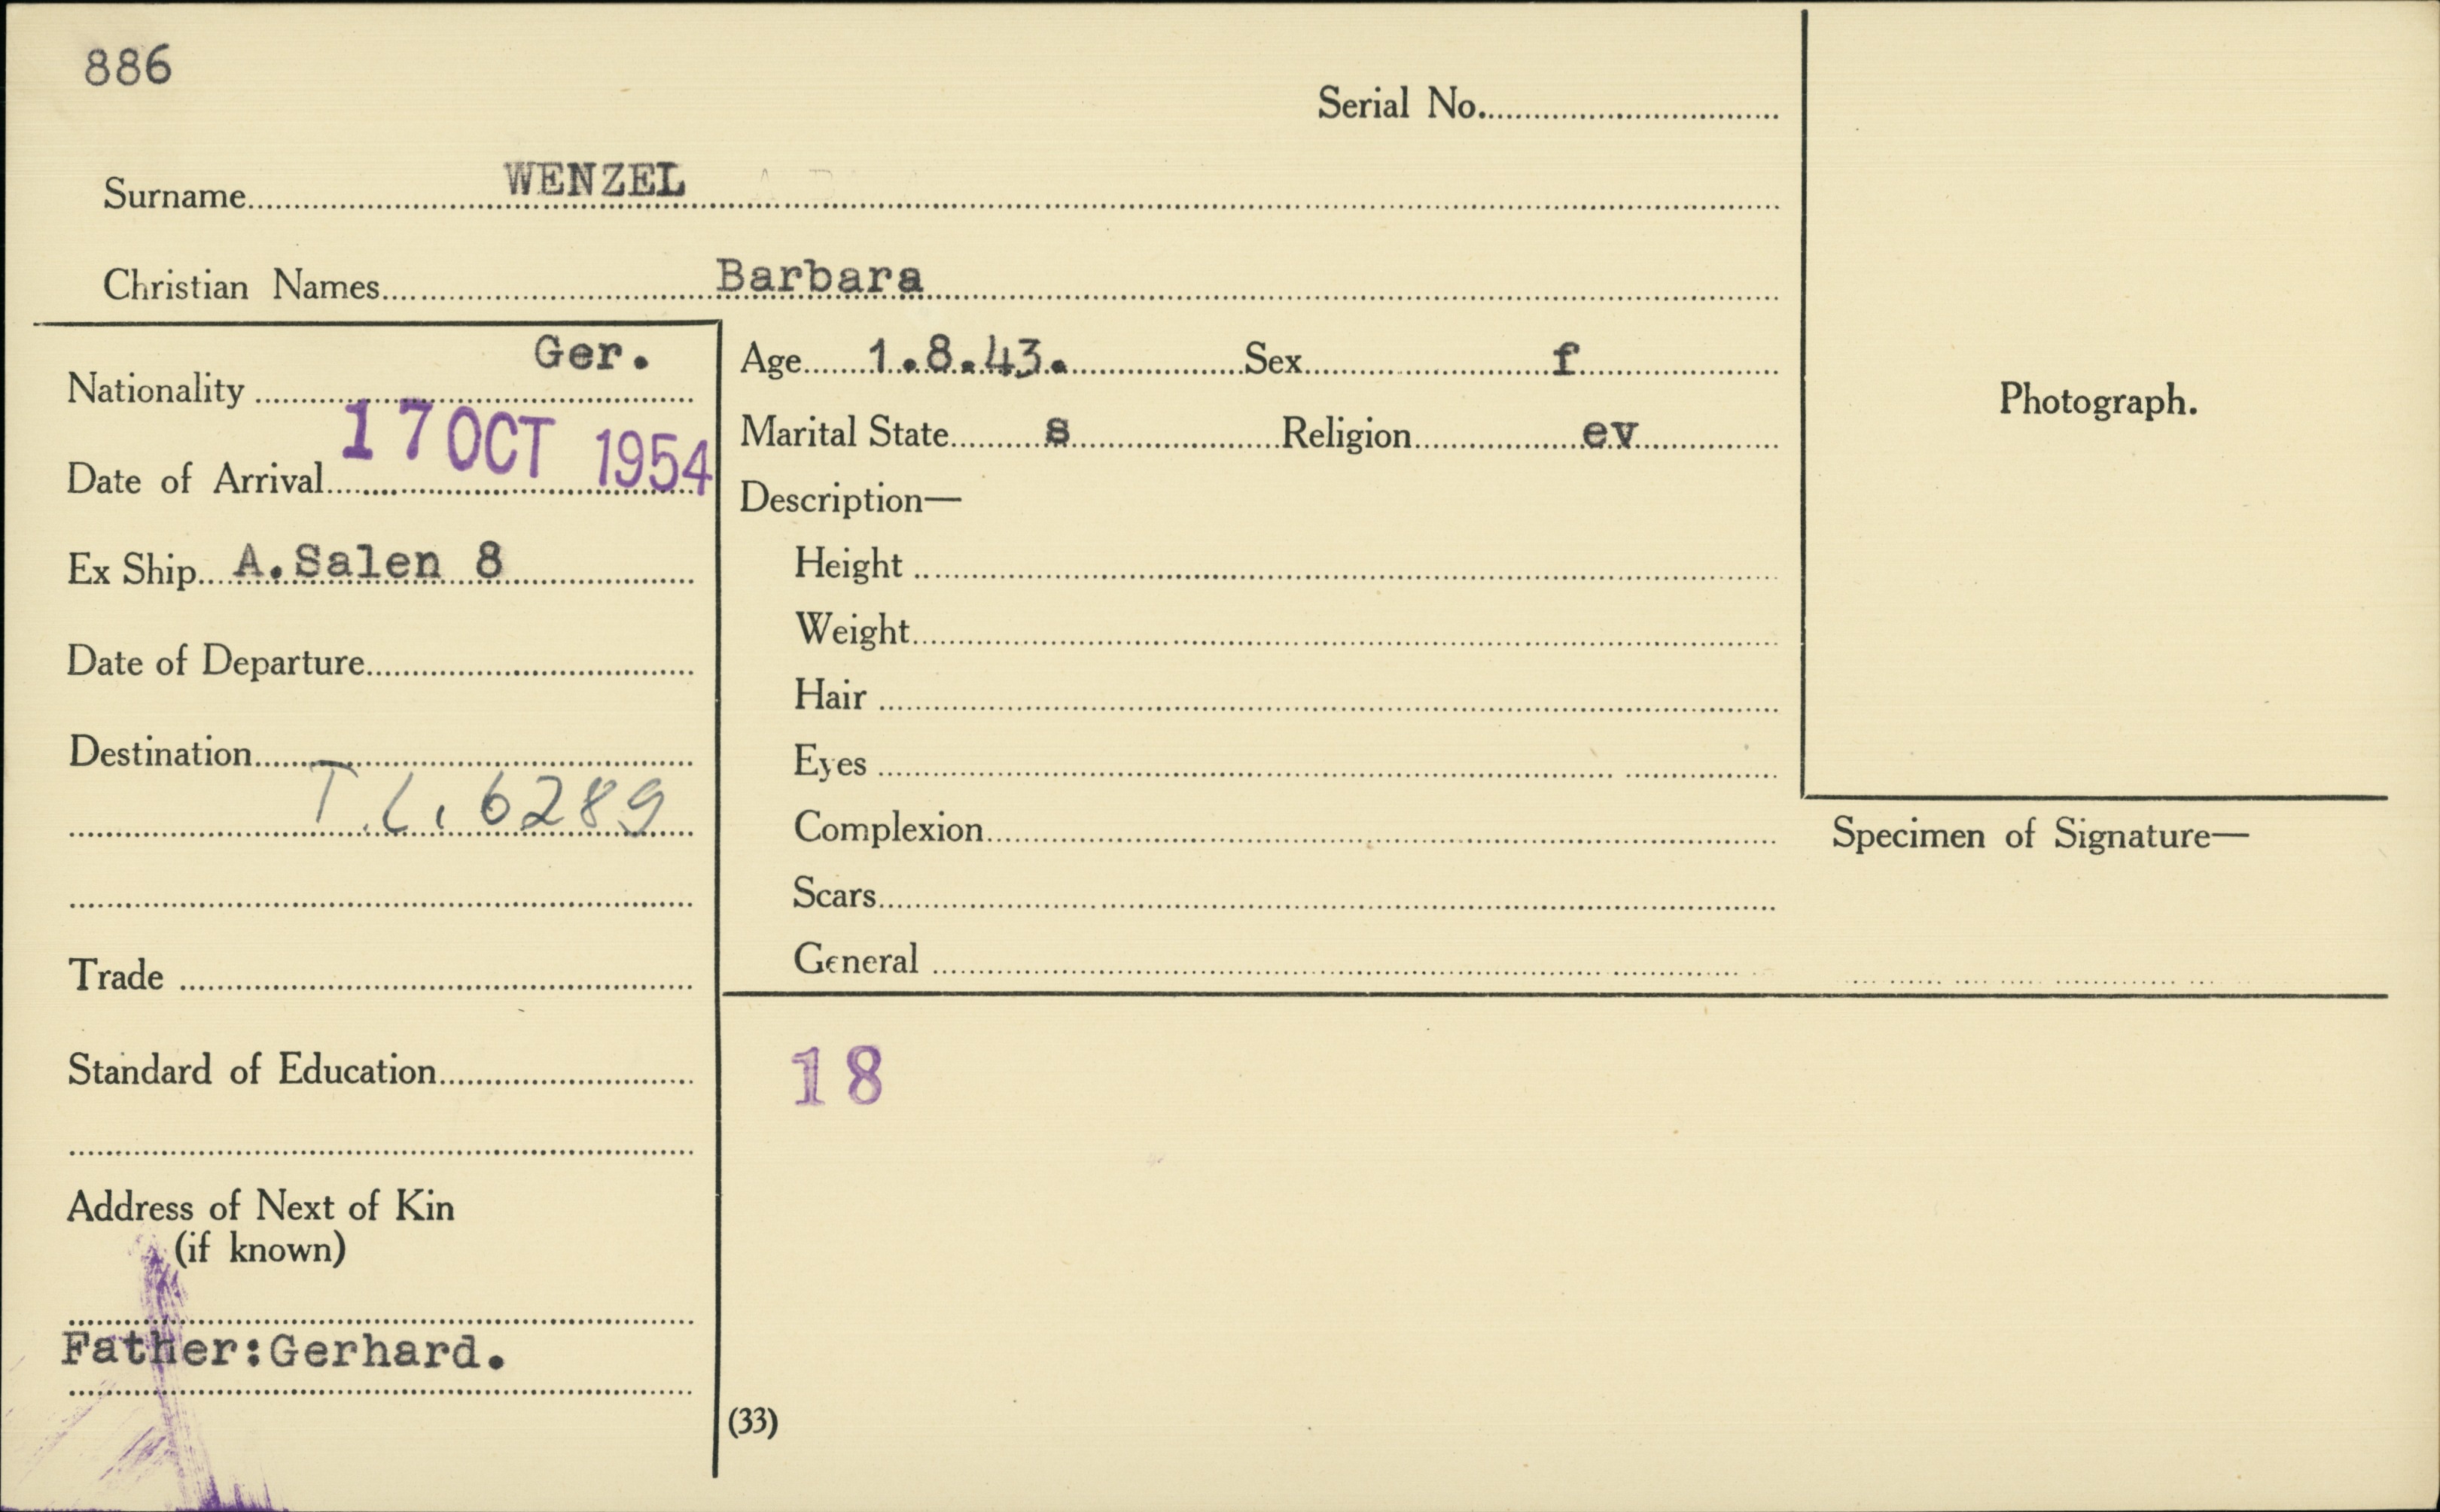 886
Serial No.
Surname WENZEL
Christian Names Barbara
Nationality Ger.
Date of Arrival 17 OCT 1954
Ex Ship A.Salen 8
Date of Departure
Destination
T.L. 6289
Trade
Standard of Education
Address of Next of Kin
(if known)
Father:Gerhard.
Age 1.8.43. Sex f
Marital State s Religion ev
Description—
Height
Weight
Hair
Eyes
Complexion
Scars
General
18
(33)
Photograph.
Specimen of Signature—